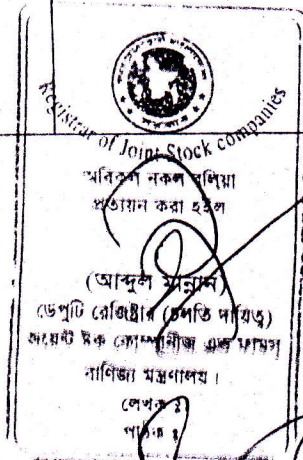 Registrar of Joint Stock companies
অবিকল নকল বলিয়া
প্রত্যয়ন করা হইল
(আব্দুল মান্নান)
ডেপুটি রেজিষ্ট্রার (চলতি দায়িত্ব)
জয়েন্ট ষ্টক কোম্পানীজ এন্ড ফার্মস
বাণিজ্য মন্ত্রণালয়।
লেখক ঃ
পাঠক ঃ